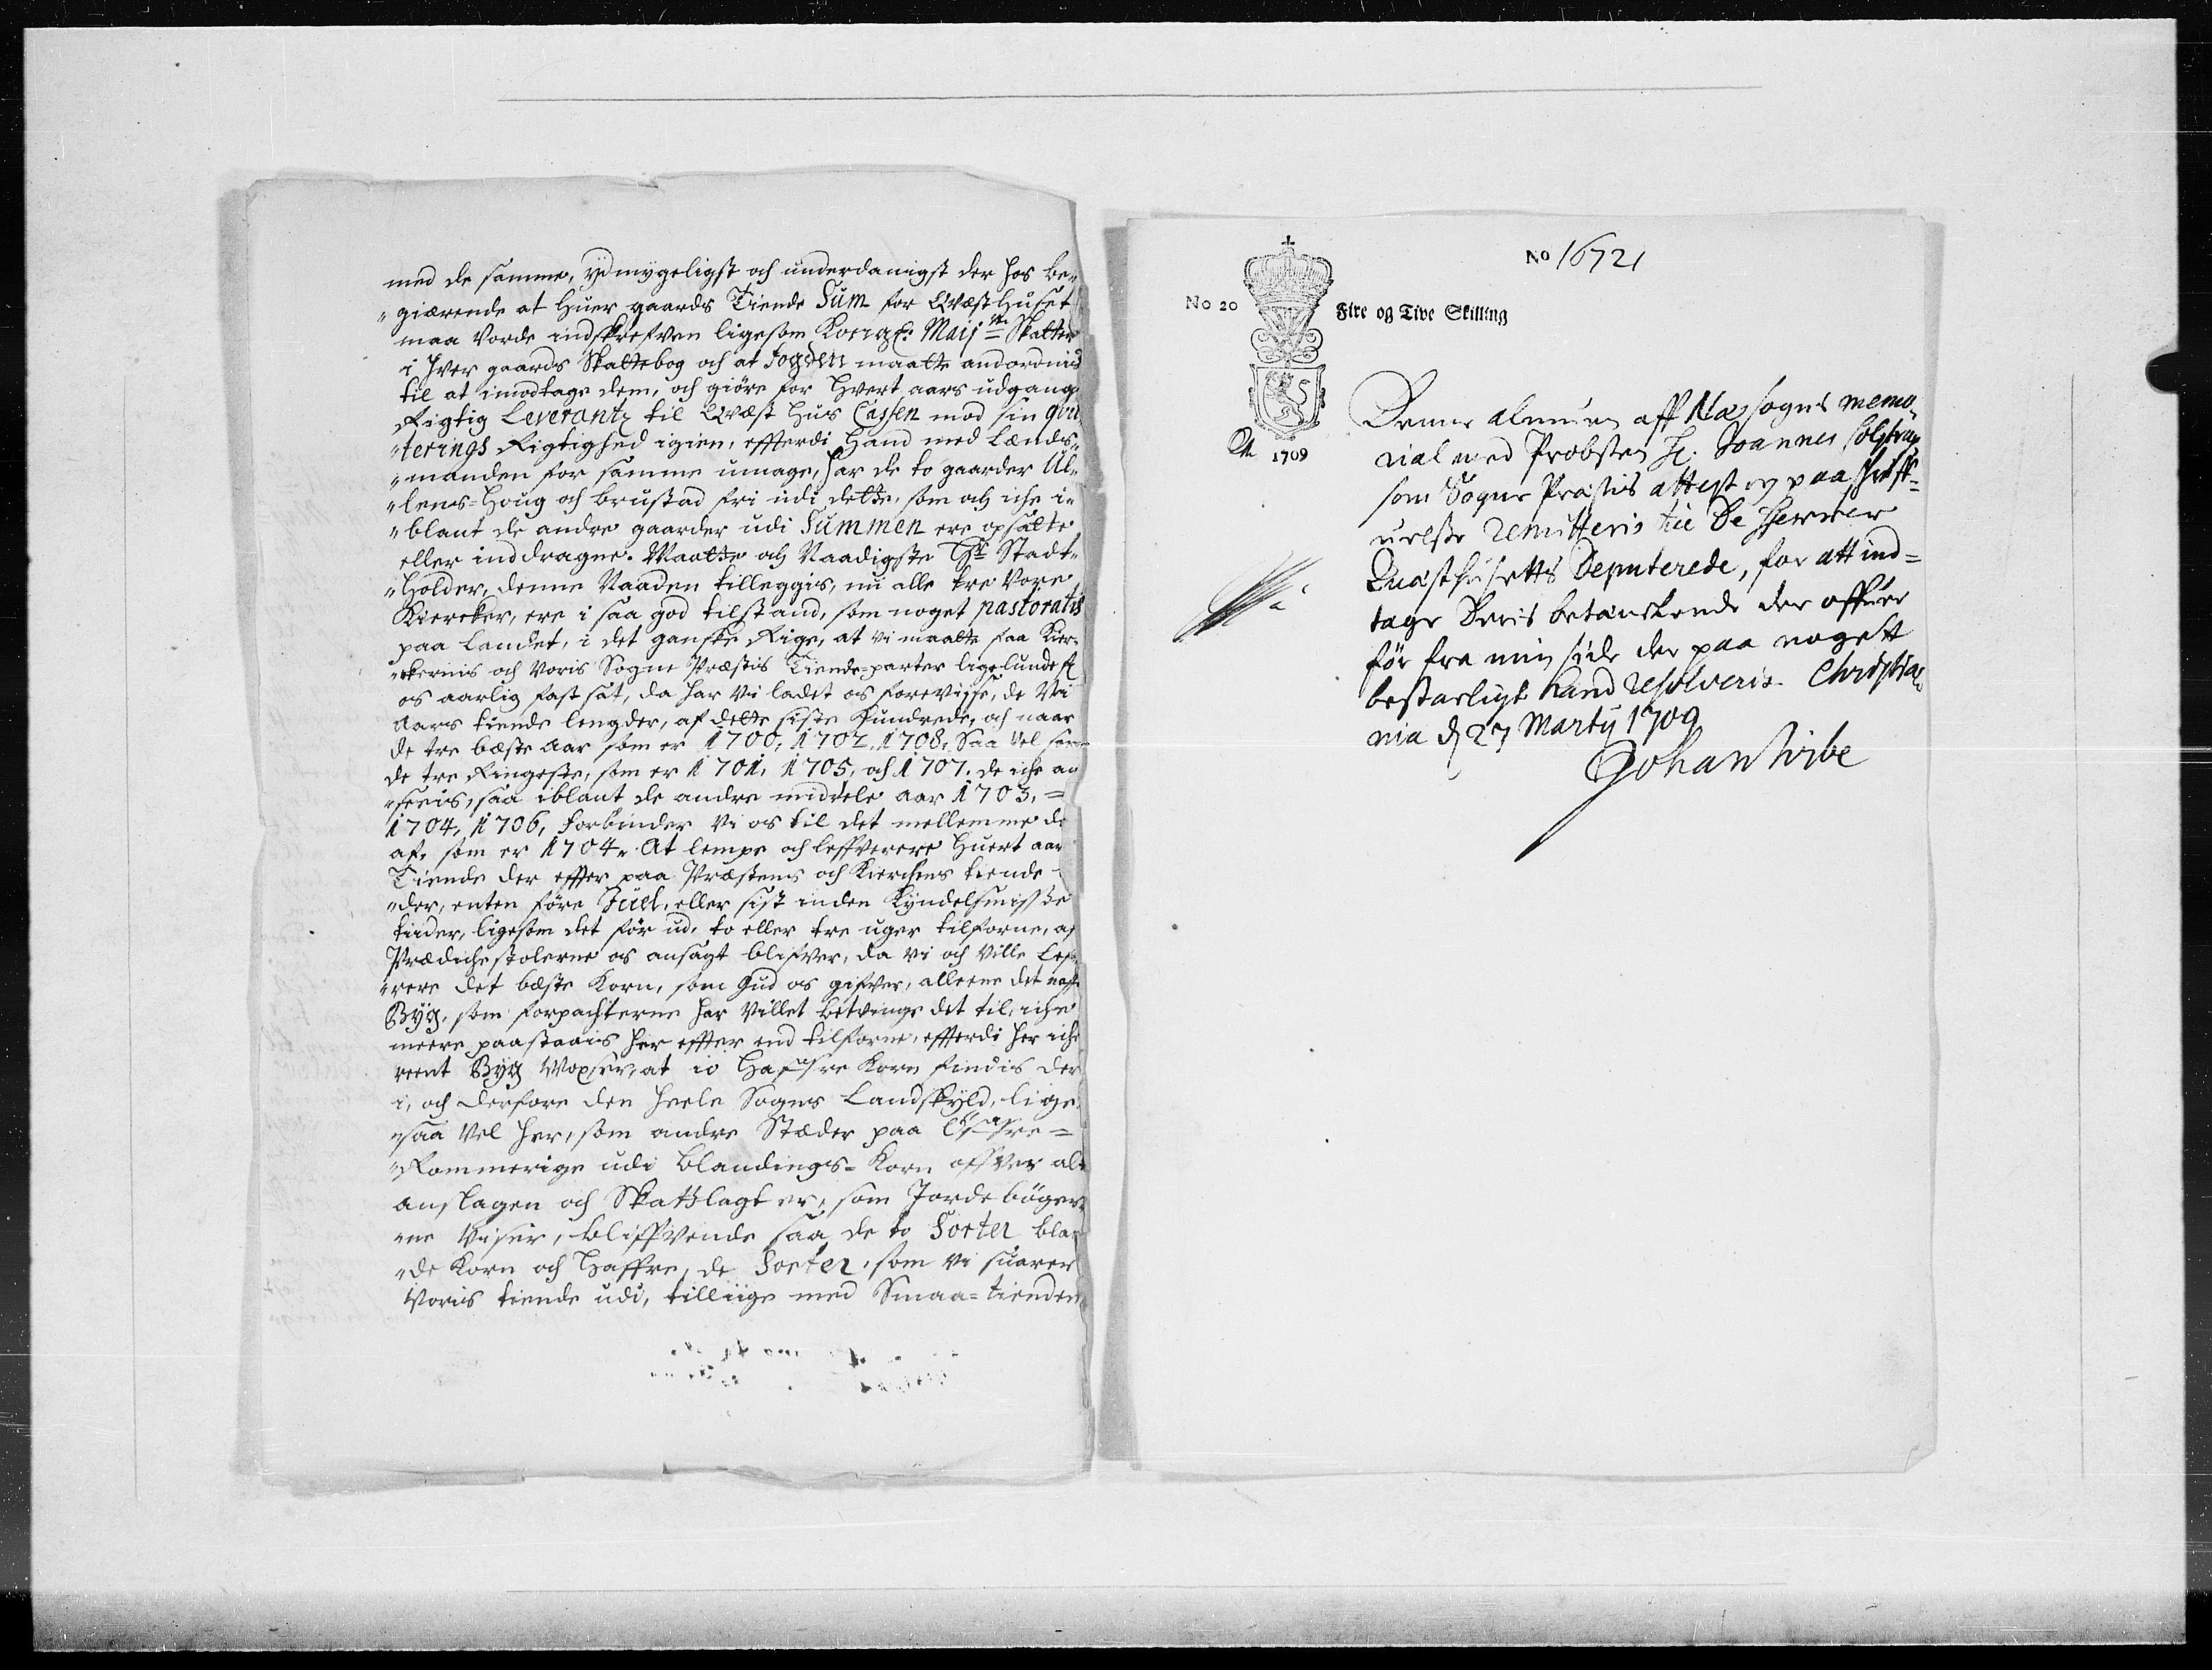 med de samme, ydmygeligst och underdanigst der hos be„
„giærende at huer gaards Tiende Sum for Qvæsthuset
maa vorde indskrefven ligesom Kongl: Maij:ts Skatter
i hver gaards Skattebog och at Fogden maatte andordnis
til at imodtage dem, och giöre for hvert aars udgang
Rigtig Leverantz til Qvæst Hus Cassen mod sin qvit
„terings Rigtighed igien, effterdi hand med Lænds„
„manden for samme umage, har de to gaarder Ul„
„lens=Houg och Brustad fri udi dette, som och iche i„
„blant de andre gaarder udi Summen ere opsatte
eller inddragne. Maatte och Naadigste Hr Stadt„
„holder, denne Naaden tilleggis, nu alle tre vore
Kiercker, ere i saa god tilstand, som noget pastoratis
paa Landet, i det gantske Rige, at vi maatte faa Kier„
„ckernis och voris Sogne Præstis Tiende=parter ligelunde
os aarlig fast sat, da har vi ladet os forevisse, de Ni
Aars tiende lengder, af dette siste hundrede, och naar
de tre bæste Aar som er 1700, 1702, 1708, Saa vel som
de tre Ringeste, som er 1701, 1705, och 1707. de iche an
„seeis, saa iblant de andre middele aar 1703, =
1704, 1706, forbinder vi os til det mellemme de
af, som er 1704. At lempe och leffverere huert aar
Tiende der effter paa Præstens och Kierchens tiende
„der, enten före Juel, eller sist inden Kyndelsmisse
tiider, ligesom det før ud, to eller tre uger tilforne, af
Prædichestolerne os ansagt blifver, da vi och ville Lef
„rere det bæste Korn, som Gud os gifver, alleene det
Byg, som forpachterne har villet betvinge det til, iche
meere paastaais her effter end tilforne, effterdi her iche
reent Byg Voxser, at io Hafre Korn findis der
i, och derfore den heele Sogns Landskyld, lige„
„saa vel her, som andre Stæder paa Öfre=
„Rommerige udi blandings=Korn offver alt
anslagen och Skatlagt er, som Jordebøger„
„ne viser, bliffvende saa de to Sorter blan
„de Korn och Haffre, de Sorter, som vi suarer
Voris tiende udi, tilliige med Smaa=tienden
No 16721
No 20
Fire og Tive Skilling
1709
Denne Almuen aff Næs sogns memo„
rial med Probsten Hr. Joannes Colstrup
som Sogne Præstis attest og paaskriff„
uelse remitteris til De Herrer
Quæsthusetts Deputerede, for att ind=
tage Deris betænkende der offuer
før fra min side der paa nogett
bestændigt kand resolveris. Christia„
nia d 27 Martij 1709
Johan Vibe